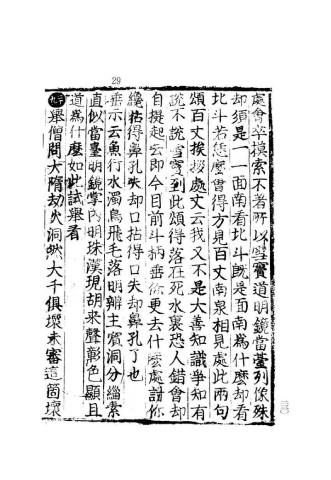 29
處會卒摸索不着所以雪竇道明鏡當臺列像殊
却須是一一面南看北斗既是面南為什麼却看
北斗若恁麼會得方見百丈南泉相見處此兩句
頌百丈挨拶處丈云我又不是大善知識爭知有
說不說雪竇到此頌得落在死水裏恐人錯會却
自提起云即今目前斗柄垂你更去什麼處討你
纔拈得鼻孔失却口拈得口失却鼻孔了也
垂示云魚行水濁鳥飛毛落明辨主賓洞分緇素
直似當臺明鏡掌內明珠漢現胡來聲彰色顯且
道為什麼如此試舉看
舉僧問大隋劫火洞然大千俱壞未審這箇壞
三〇